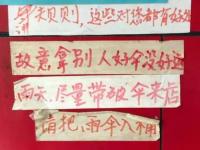 讲天贝则,这些对您都有好处
故意拿别人好伞没好运
雨天,尽量带破伞来店
请把雨伞入桶